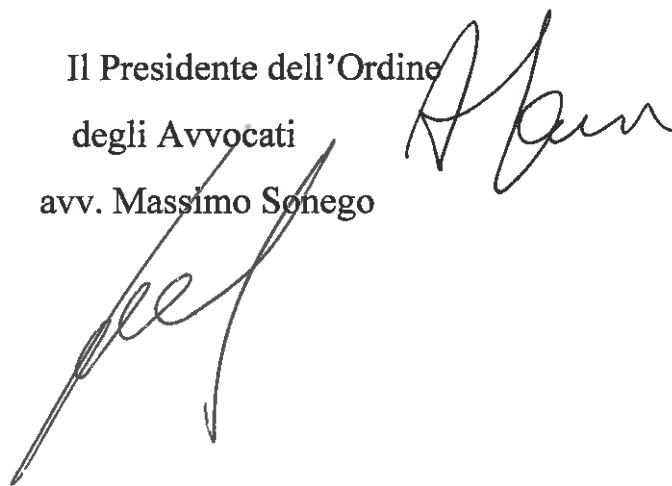 Il Presidente dell'Ordine
degli Avvocati
avv. Massimo Sonego